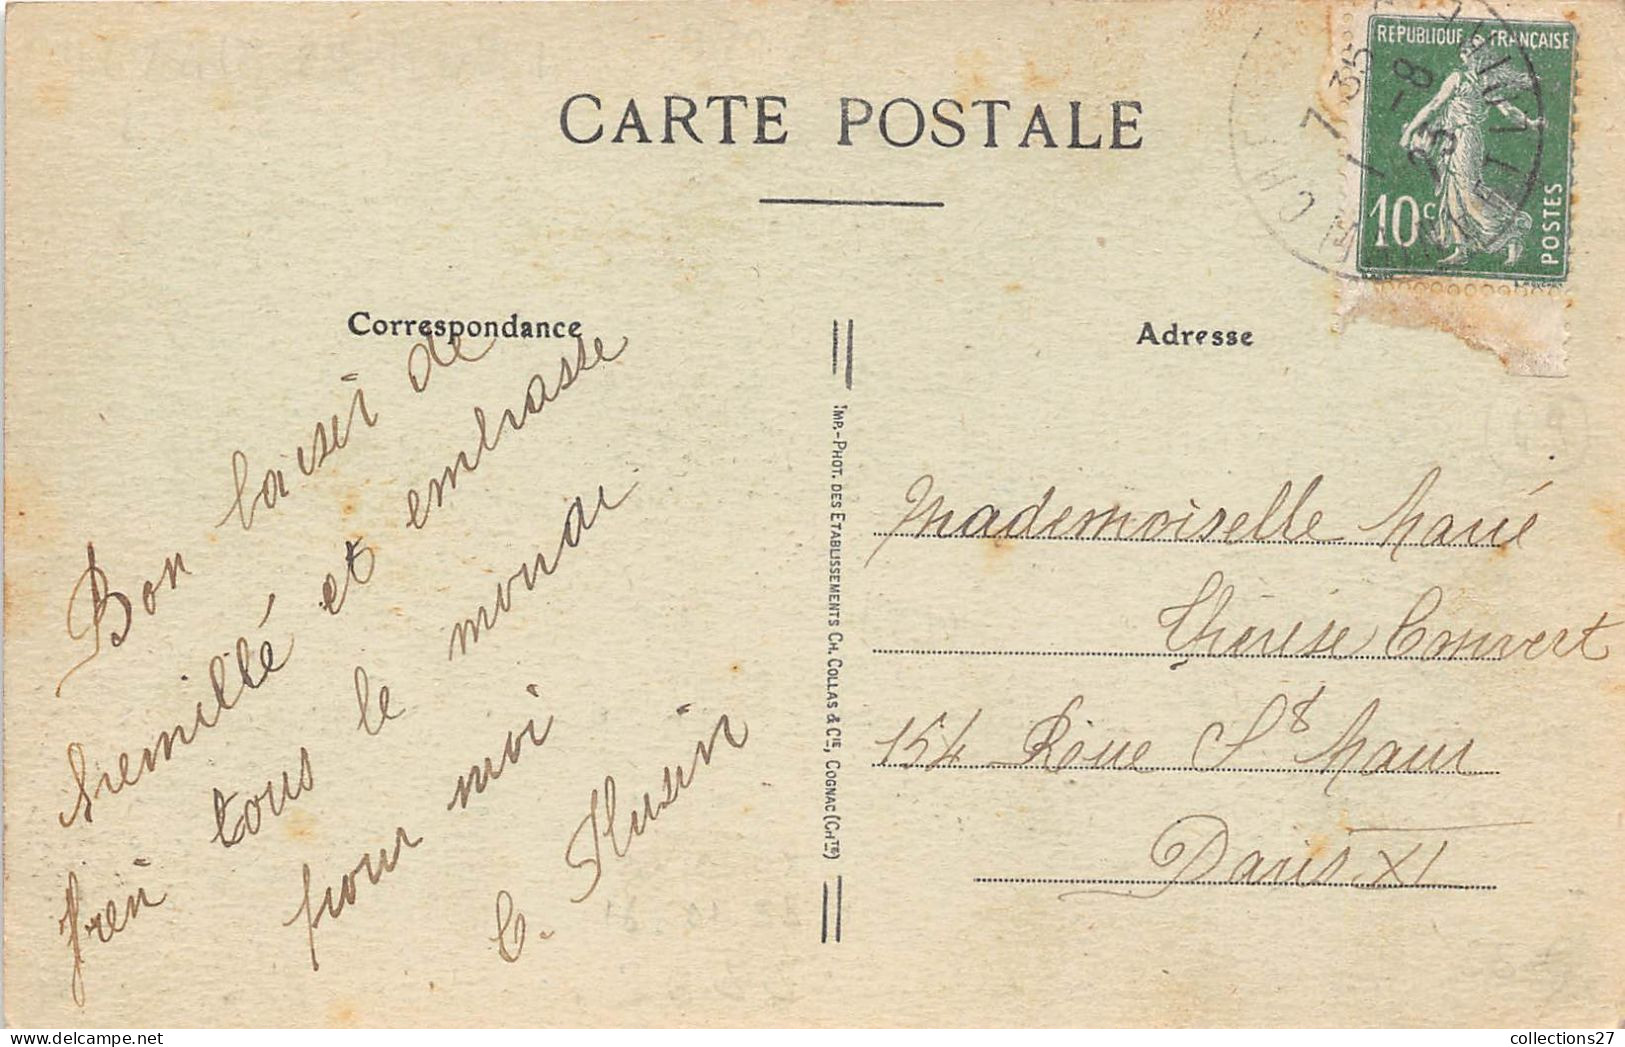 CARTE POSTALE
REPUBLIQUE FRANÇAISE
10c
POSTES
7 35
1 -8
23
Correspondance
Adresse
Bon baiser de
Tremillé et embrasse
bien tous le monde
pour moi
C. Husin
IMP.-PHOT. DES ETABLISSEMENTS CH. COLLAS & CIE, COGNAC (CHTE)
Mademoiselle Marie
Thérèse Convert
154 Roue St Maur
Paris XI
collections27